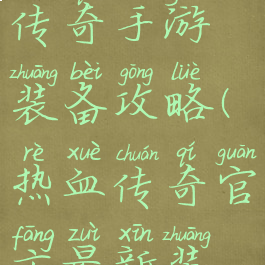 传奇手游
zhuāng bèi gōng lüè
装备攻略(
rè xuè chuán qí guān
热血传奇官
fāng zuì xīn zhuāng
方最新装